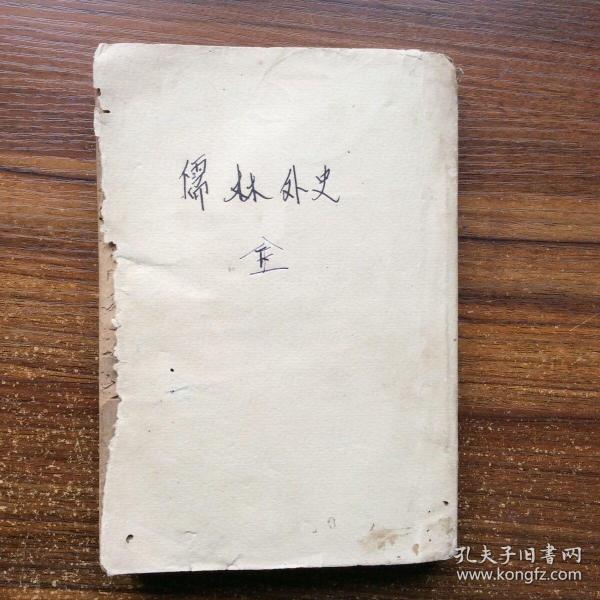 儒林外史
全
孔夫子旧书网
www.kongfz.com